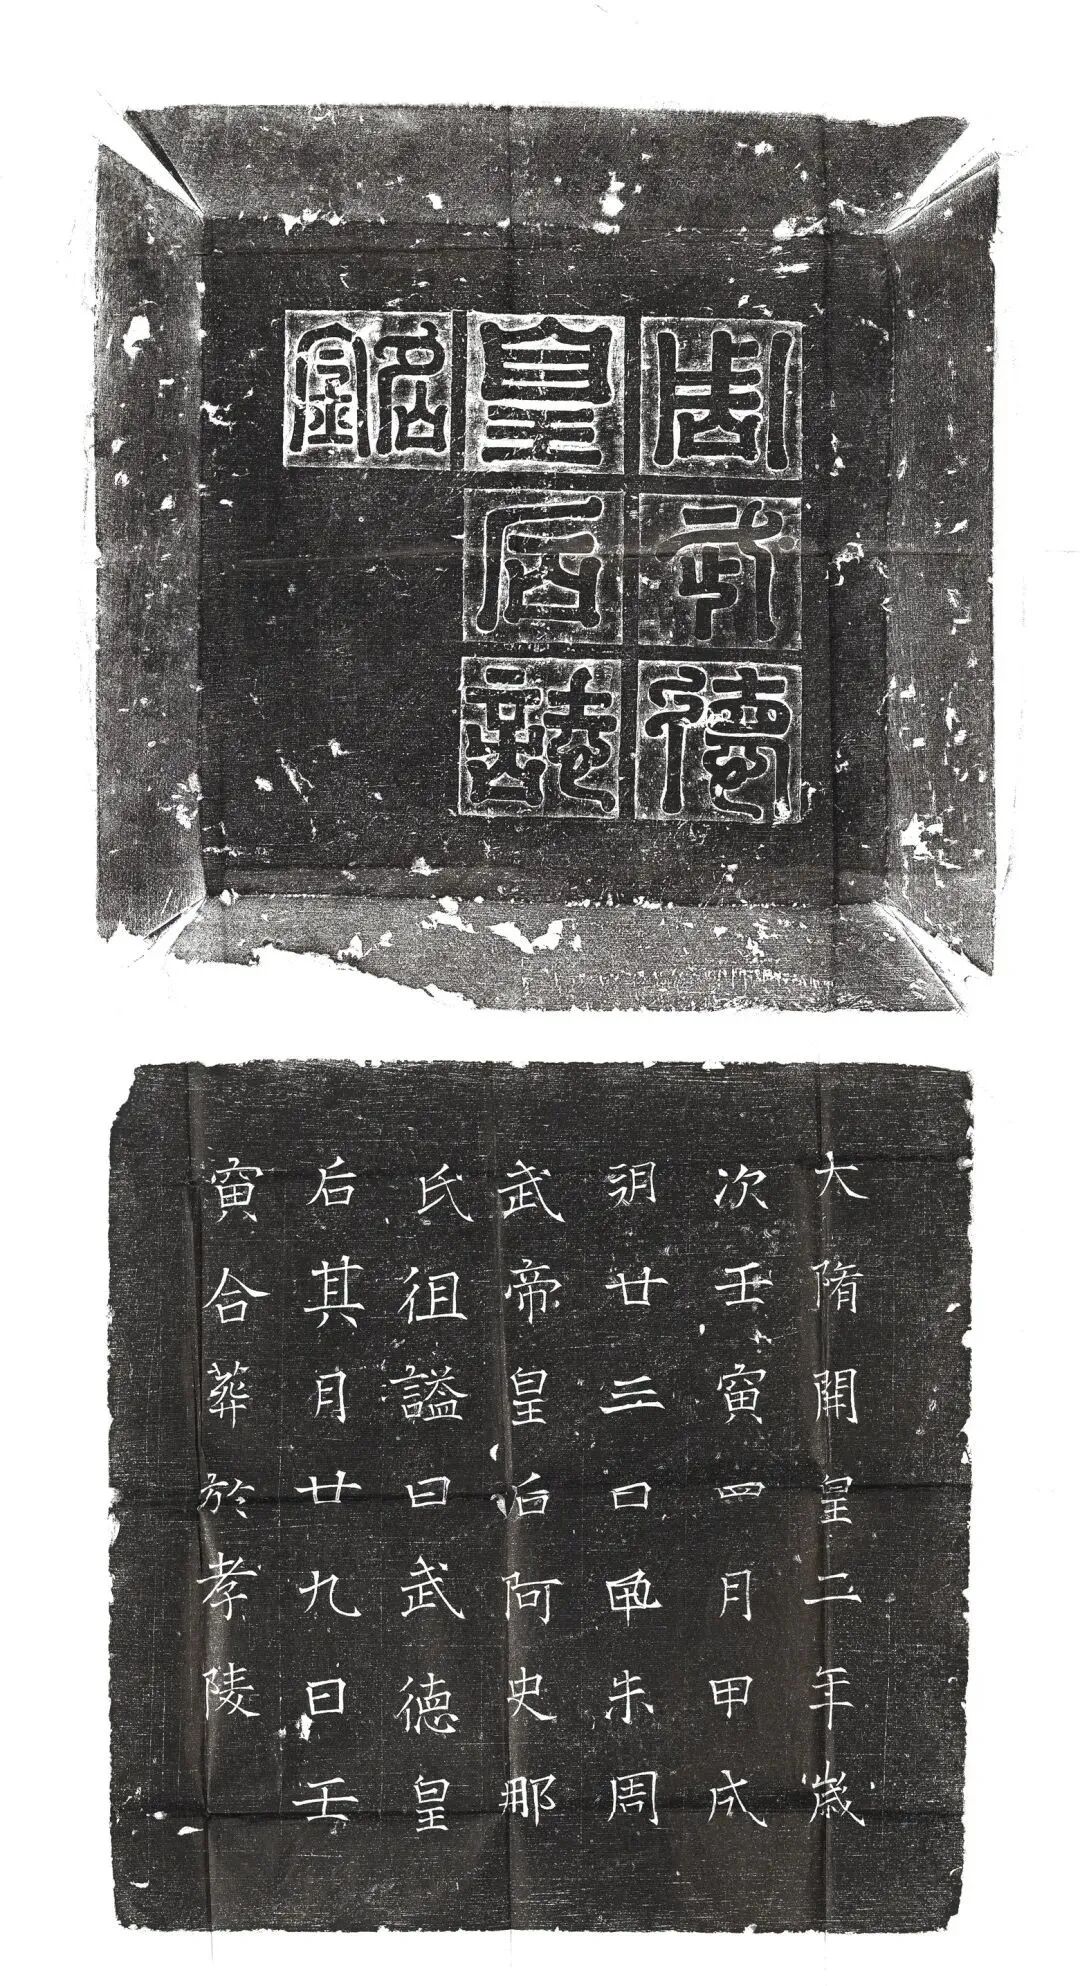 周武德
皇后誌
銘
大隋開皇二年歲
次壬寅四月甲戌
朔廿三日甲未周
武帝皇后阿史那
氏徂謚曰武德皇
后其月廿九日壬
寅合葬於孝陵